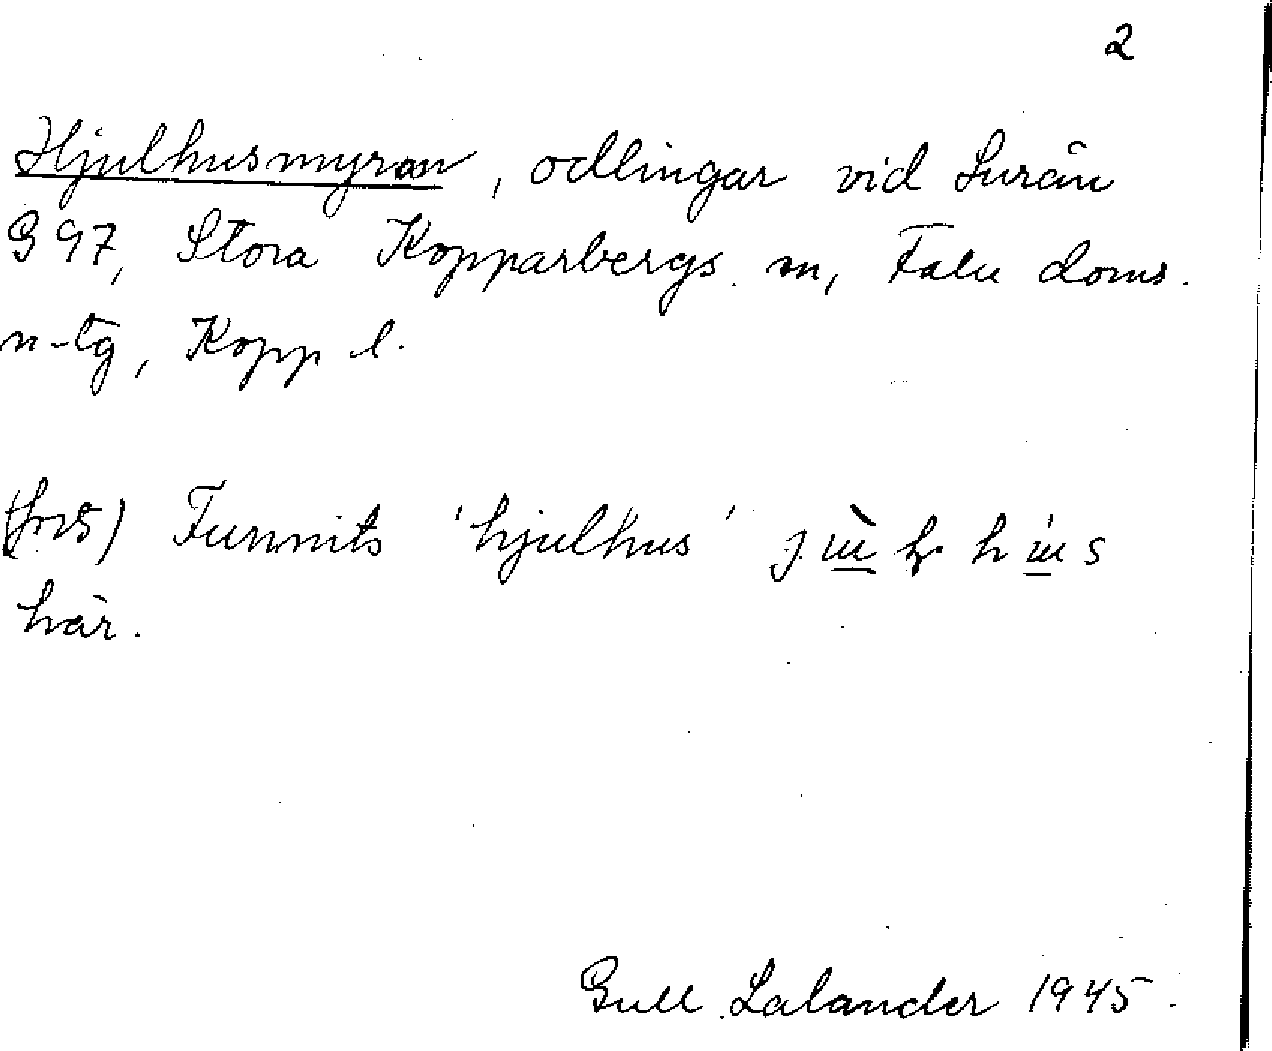 2
Hjulhusmyran, odlingar vid Surån
G 97, Stora Kopparbergs m, Falu doms.
n-tg, Kopp l.
Funnits 'hjulhus'
här.
Gull Lalander 1945.